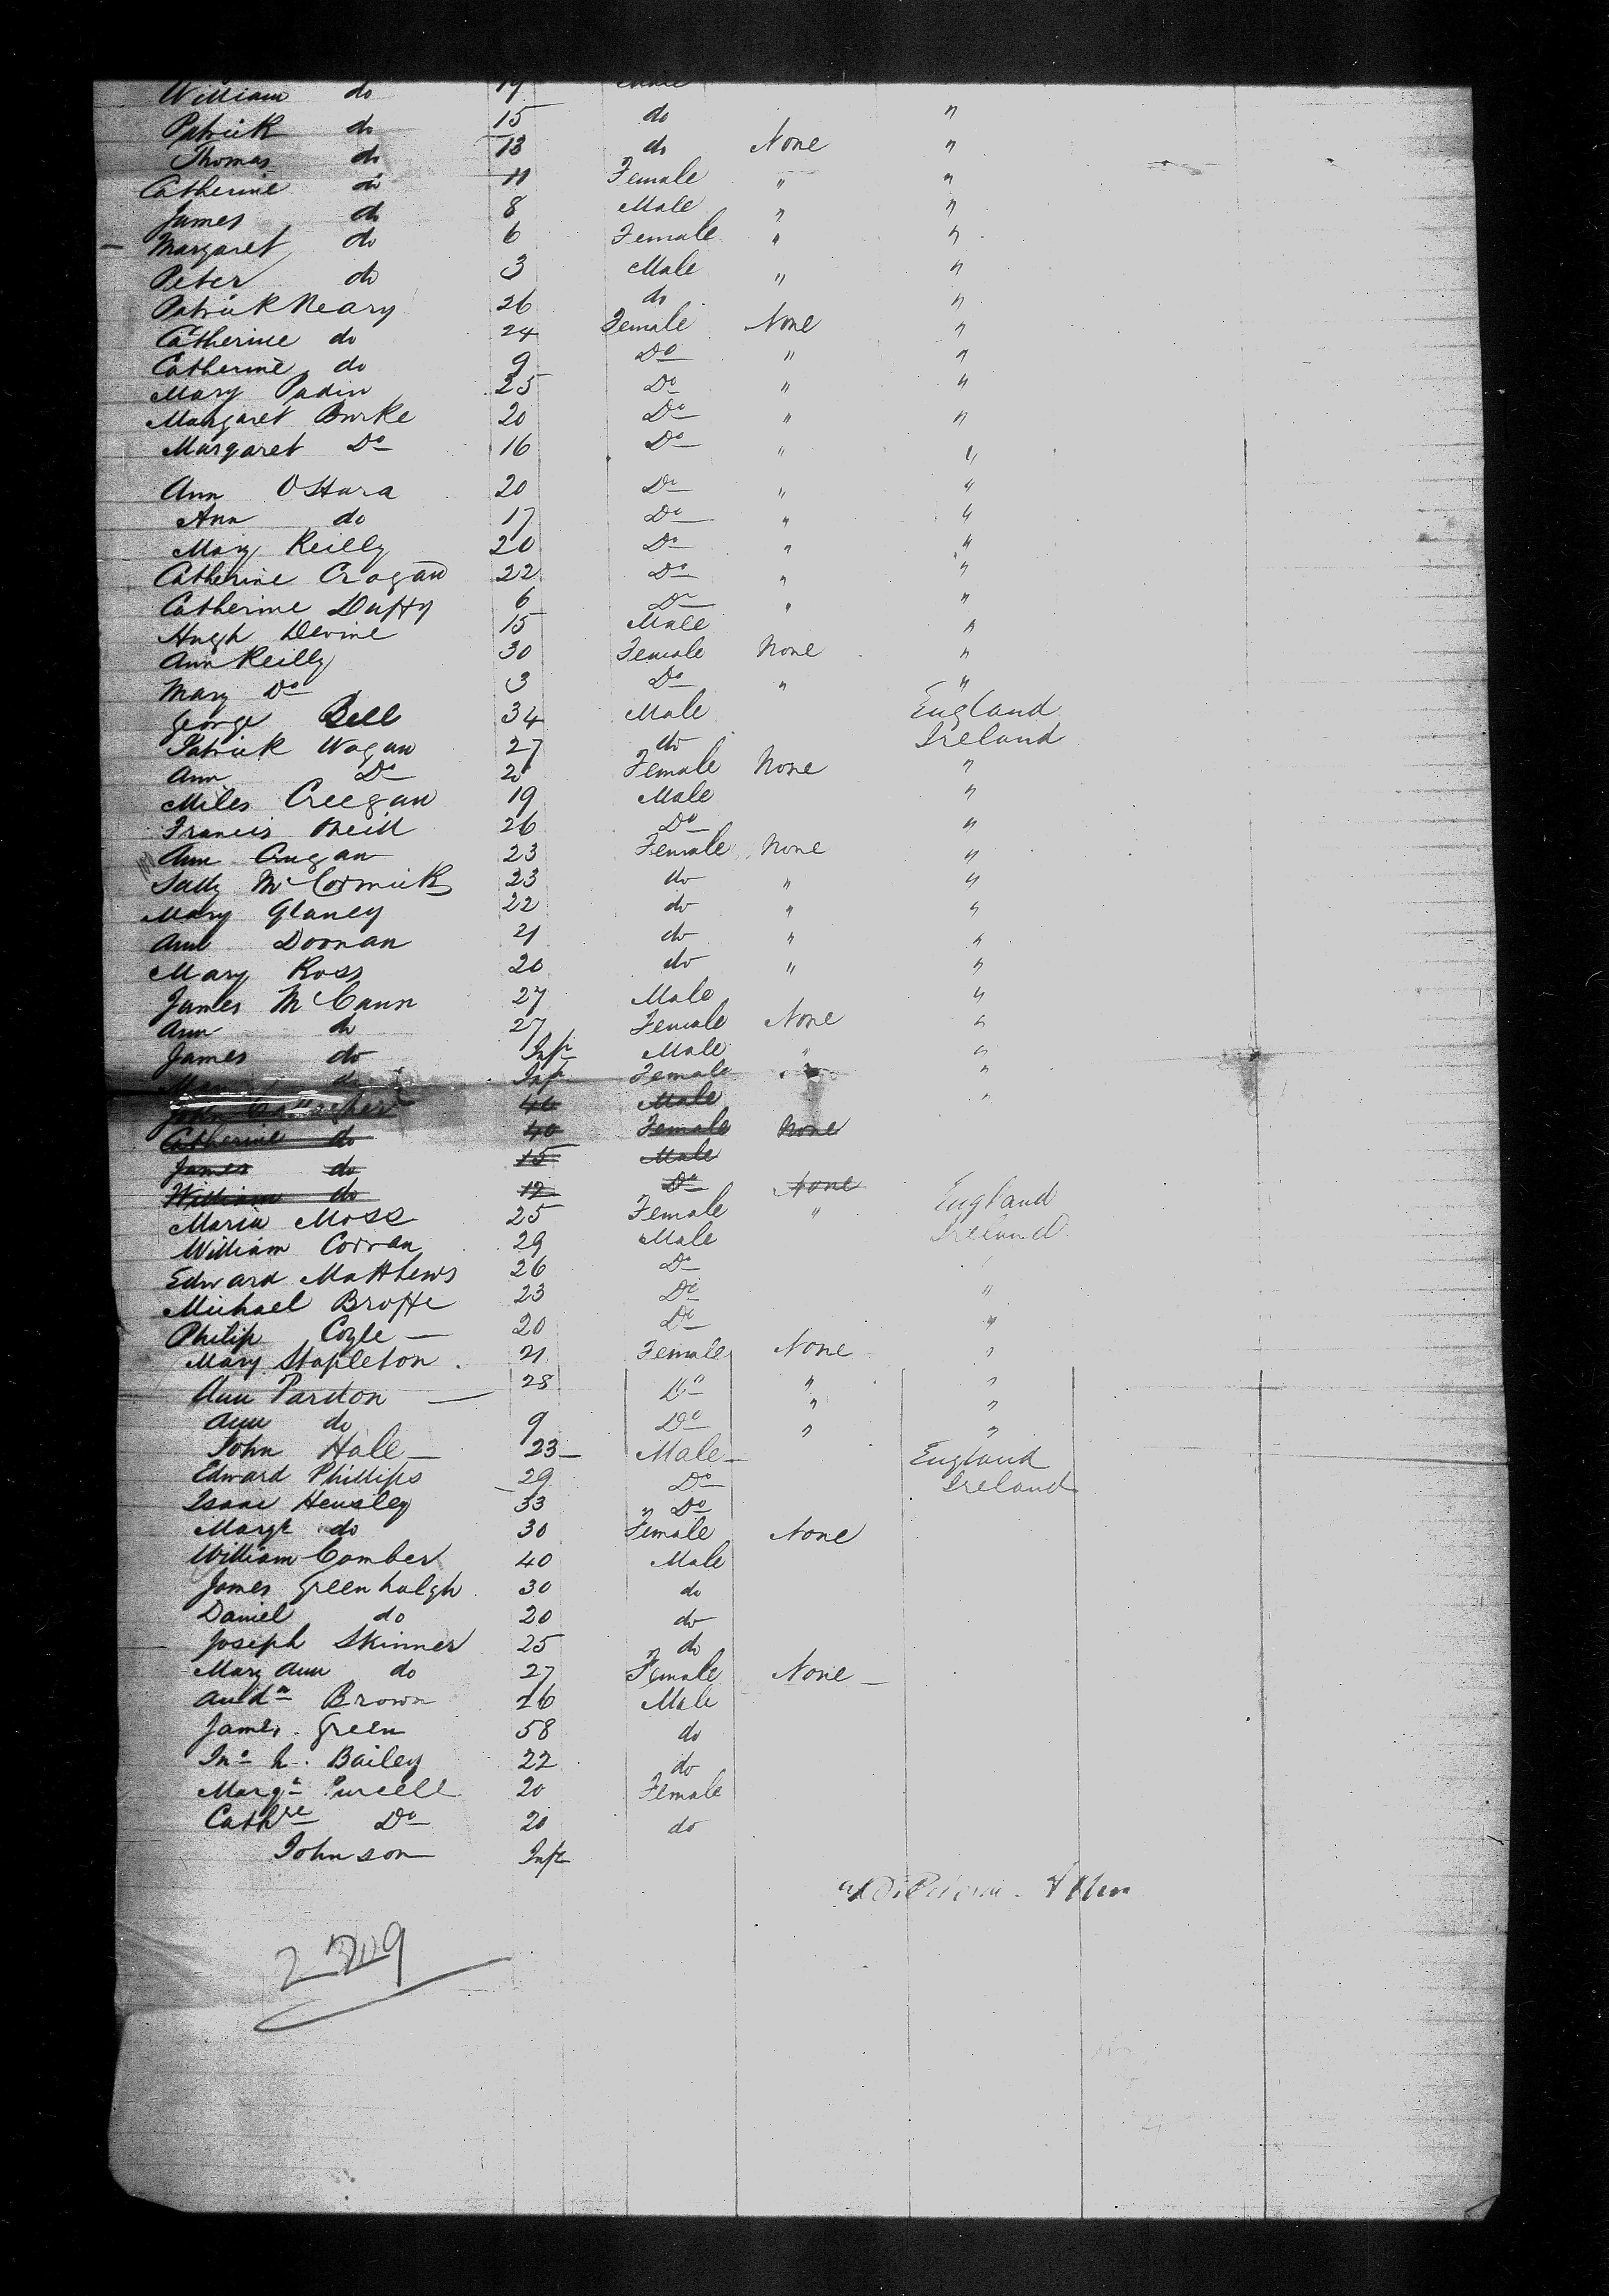 William do 19
Patrick do 15 do "
Thomas do 13 do None "
Catherine do 11 Female " "
James do 8 Male " "
Margaret do 6 Female " "
Peter do 3 Male " "
Patrick Neary 26 do "
Catherine do 24 Female None "
Catherine do 9 Do " "
Mary Padin 25 Do " "
Margaret Burke 20 Do " "
Margaret Do 16 Do " "
Ann OHara 20 Do " "
Ann do 17 Do " "
Mary Reilly 20 Do " "
Catherine Crogan 22 Do " "
Catherine Duffy 6 Do " "
Hugh Devine 15 Male "
Ann Reilly 30 Female None "
Mary Do 3 Do " "
George Bell 34 Male England
Patrick Wogan 27 do Ireland
Ann Do 20 Female None "
Miles Creegan 19 Male "
Francis Neill 26 Do "
Ann Crugan 23 Female None "
Sally McCormick 23 do " "
Mary Glancy 22 do " "
Ann Doonan 21 do " "
Mary Ross 20 do " "
James McCann 27 Male "
Ann do 27 Female None "
James do Inft Male " "
Mary do Inf Female " "
John Gallagher 46 Male "
Catherine do 40 Female None
James do 15 Male
William do 12 Do None
Maria Moss 25 Female " England
William Corran 29 Male Ireland
Edward Matthews 26 Do "
Michael Broffe 23 Do "
Philip Coyle 20 Do "
Mary Stapleton 21 Female None "
Ann Pardon 28 Do " "
Ann do 9 Do " "
John Hale 23 Male England
Edward Phillips 29 Do Ireland
Isaac Hensley 33 " Do
Margt do 30 Female None
William Comber 40 Male
James Greenhalgh 30 do
Daniel do 20 do
Joseph Skinner 25 do
Mary Ann do 27 Female None
Brown 26 Male
James Green 58 do
Jno h. Bailey 22 do
Margt Purcell 20 Female
Cathre Do 20 do
Johnson Inft